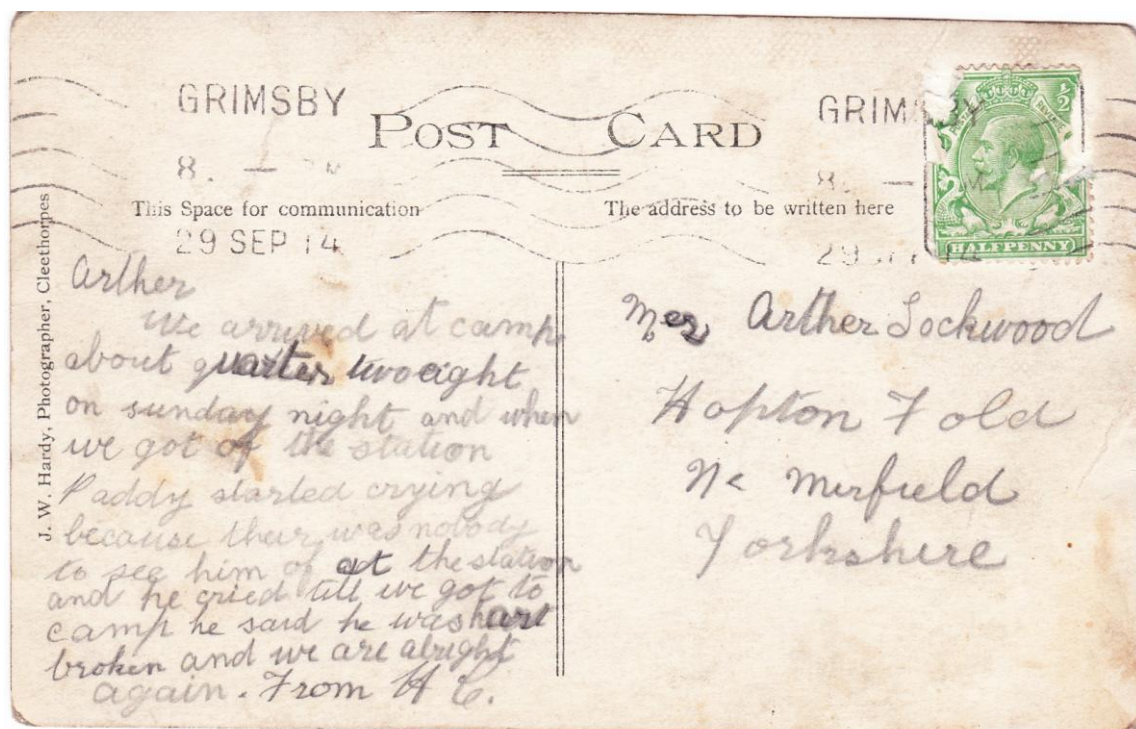 GRIMSBY
8. — PM
29 SEP 14
POST CARD
GRIMSBY
8. — M
29 SEP 14
½
HALFPENNY
This Space for communication
The address to be written here
J. W. Hardy, Photographer, Cleethorpes
Arther
We arrived at camp
about quarter two eight
on sunday night and when
we got of the station
Paddy started crying
because their was nobody
to see him of at the station
and he cried till we got to
camp he said he was hart
broken and we are alright
again. From H C.
Arther Lockwood
Hopton Fold
Nr Mirfield
Yorkshire